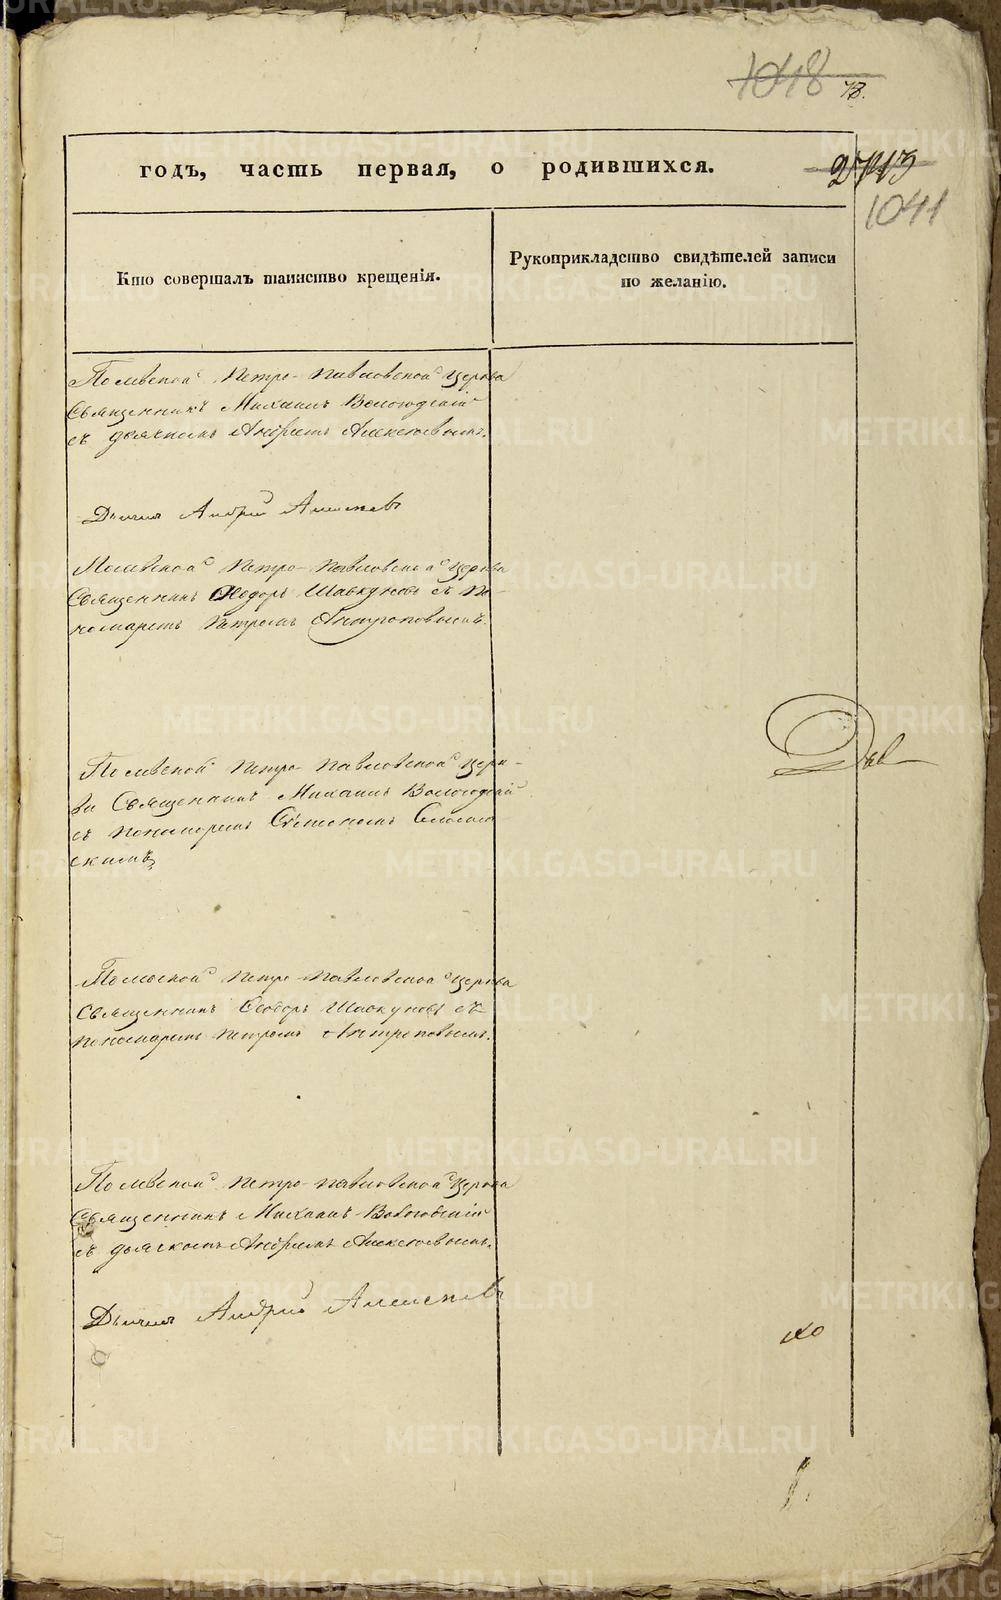 1048
78.
годъ, часть первая, о родившихся.
2713
1041
Кто совершалъ таинство крещенія.
Рукоприкладство свидѣтелей записи
по желанію.
Полевской Петро-Павловской Церкви
Священникъ Михаилъ Вологодскій
съ дьячкомъ Андреемъ Алексѣевымъ.
Дьячекъ Андрей Алексѣевъ
Полевской Петро-Павловской Церкви
Священникъ Ѳедоръ Шавкуновъ съ по-
номаремъ Петромъ Антроповымъ.
Полевской Петро-Павловской Церк-
ви Священникъ Михаилъ Вологодскій
съ пономаремъ Степаномъ
скимъ
Полевской Петро-Павловской Церкви
Священникъ Ѳеодоръ Шавкуновъ съ
пономаремъ Петромъ Антроповымъ.
Полевской Петро-Павловской Церкви
Священникъ Михаилъ Вологодскій
съ дьячкомъ Андреемъ Алексѣевымъ.
Дьячекъ Андрей Алексѣевъ
METRIKI.GASO-URAL.RU